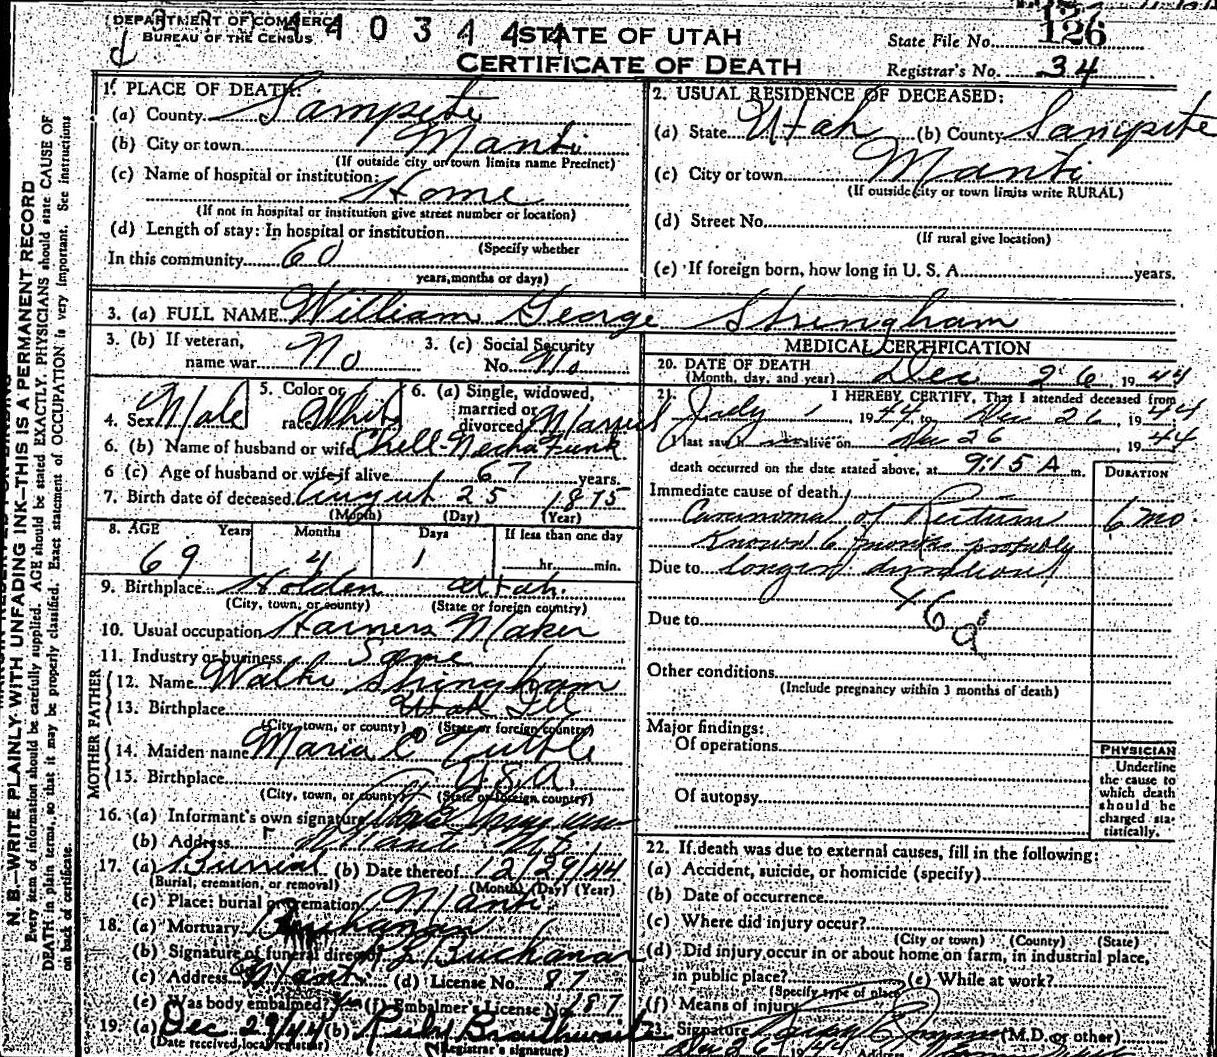 DEPARTMENT OF COMMERCE
BUREAU OF THE CENSUS
STATE OF UTAH
CERTIFICATE OF DEATH
State File No. 126
Registrar's No. 34
N. B.—WRITE PLAINLY WITH UNFADING INK—THIS IS A PERMANENT RECORD
Every item of information should be carefully supplied. AGE should be stated EXACTLY. PHYSICIANS should state CAUSE OF
DEATH in plain terms, so that it may be properly classified. Exact statement of OCCUPATION is very important. See instructions
on back of certificate.
1. PLACE OF DEATH:
(a) County Sanpete
(b) City or town Manti
(If outside city or town limits name Precinct)
(c) Name of hospital or institution:
Home
(If not in hospital or institution give street number or location)
(d) Length of stay: In hospital or institution
(Specify whether
In this community 60
years, months or days)
2. USUAL RESIDENCE OF DECEASED:
(a) State Utah (b) County Sanpete
(c) City or town Manti
(If outside city or town limits write RURAL)
(d) Street No.
(If rural give location)
(e) If foreign born, how long in U. S. A. years.
3. (a) FULL NAME William George Stringham
3. (b) If veteran, name war No
3. (c) Social Security No. No
4. Sex Male
5. Color or race White
6. (a) Single, widowed, married or divorced Married
6. (b) Name of husband or wife Funk
6 (c) Age of husband or wife if alive 67 years.
7. Birth date of deceased August 25 1875
(Month) (Day) (Year)
8. AGE Years Months Days If less than one day
69 4 1 hr. min.
9. Birthplace Holden Utah.
(City, town, or county) (State or foreign country)
10. Usual occupation Harness Maker
11. Industry or business Same
FATHER
12. Name Stringham
13. Birthplace
(City, town, or county) (State or foreign country)
MOTHER
14. Maiden name Maria C Tuttle
15. Birthplace U.S.A.
(City, town, or county) (State or foreign country)
16. (a) Informant's own signature
(b) Address Manti
17. (a) Burrial (b) Date thereof 12/29/44
(Burial, cremation, or removal) (Month) (Day) (Year)
(c) Place: burial or cremation Manti
18. (a) Mortuary Buchanan
(b) Signature of funeral director Buchanan
(c) Address Manti (d) License No. 87
(e) Was body embalmed? (f) Embalmer's License No. 187
19. (a) Dec 29/44 (b) Ruby Braithwaite
(Date received local registrar) (Registrar's signature)
MEDICAL CERTIFICATION
20. DATE OF DEATH
(Month, day, and year) Dec 26, 1944
21. I HEREBY CERTIFY, That I attended deceased from
July 1, 1944, to Dec 26, 1944
I last saw h im alive on Dec 26 1944
death occurred on the date stated above, at 9:15 A m.
DURATION
Immediate cause of death
Carcinoma of Rectum 6 mo.
Known 6 months probably
Due to longer duration
46a
Due to
Other conditions
(Include pregnancy within 3 months of death)
Major findings:
Of operations
Of autopsy
PHYSICIAN
Underline
the cause to
which death
should be
charged sta-
tistically.
22. If death was due to external causes, fill in the following:
(a) Accident, suicide, or homicide (specify)
(b) Date of occurrence
(c) Where did injury occur?
(City or town) (County) (State)
(d) Did injury occur in or about home on farm, in industrial place,
in public place? (e) While at work?
(Specify type of place)
(f) Means of injury
23. Signature (M.D. or other)
Dec 26 1944